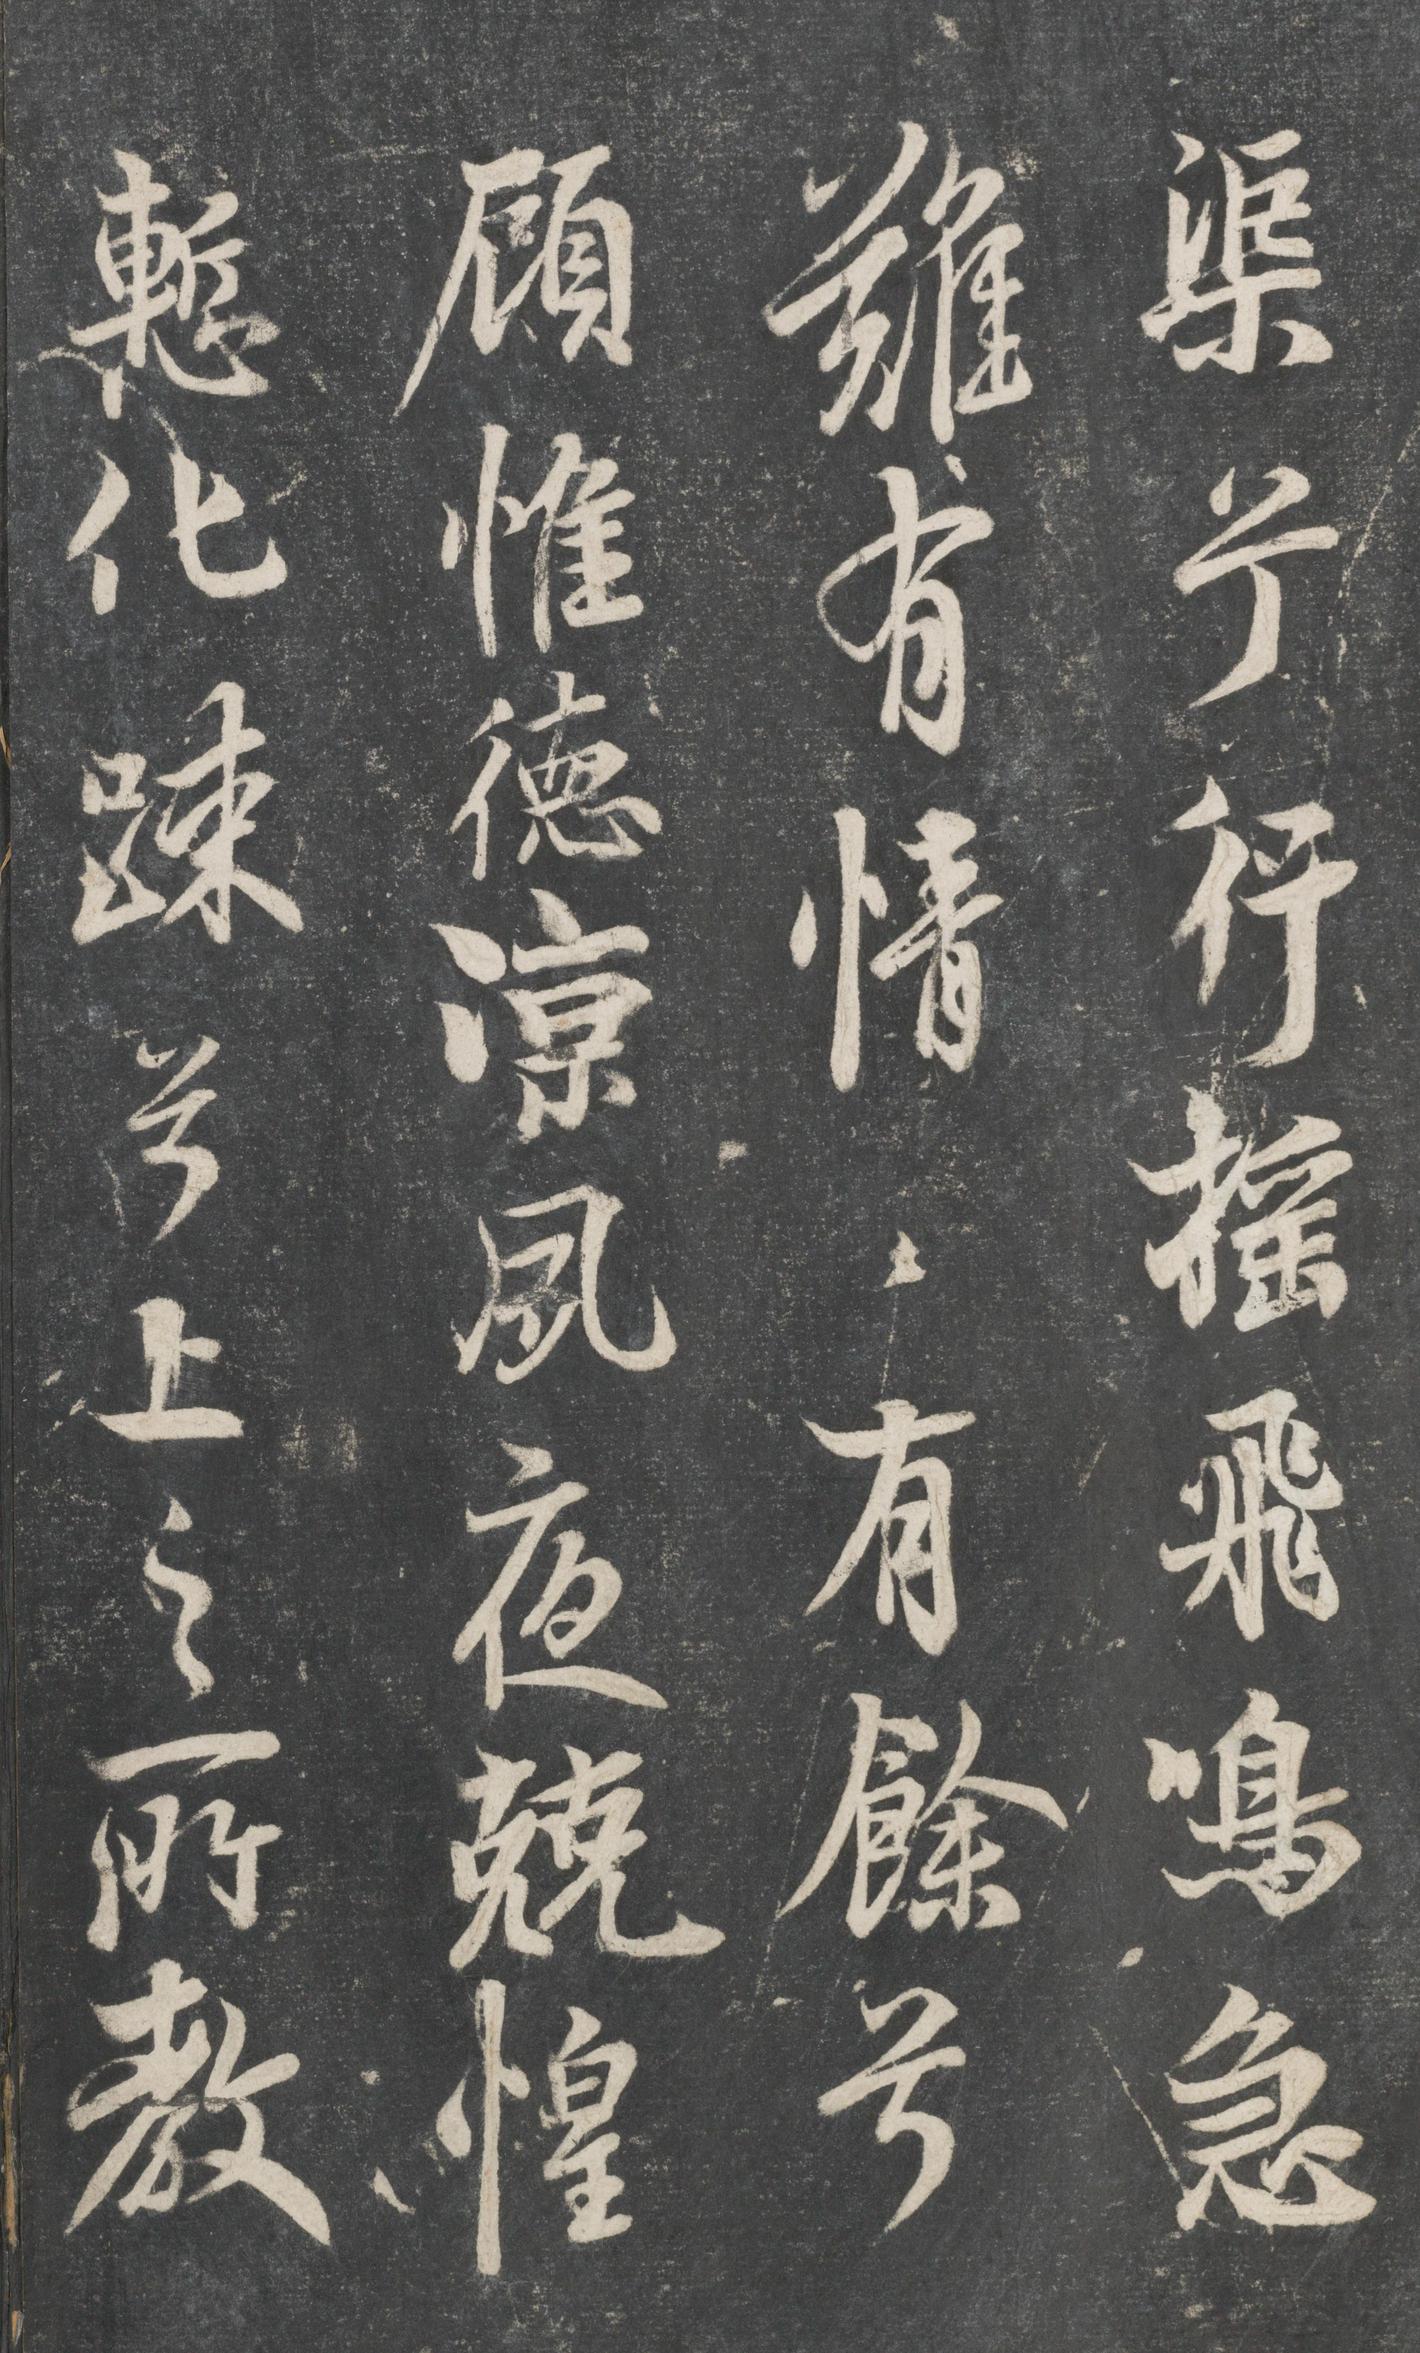 渠兮行搖飛鳴急
難有情〻有餘兮
顧惟德凉夙夜兢惶
慙化踈兮上之所教